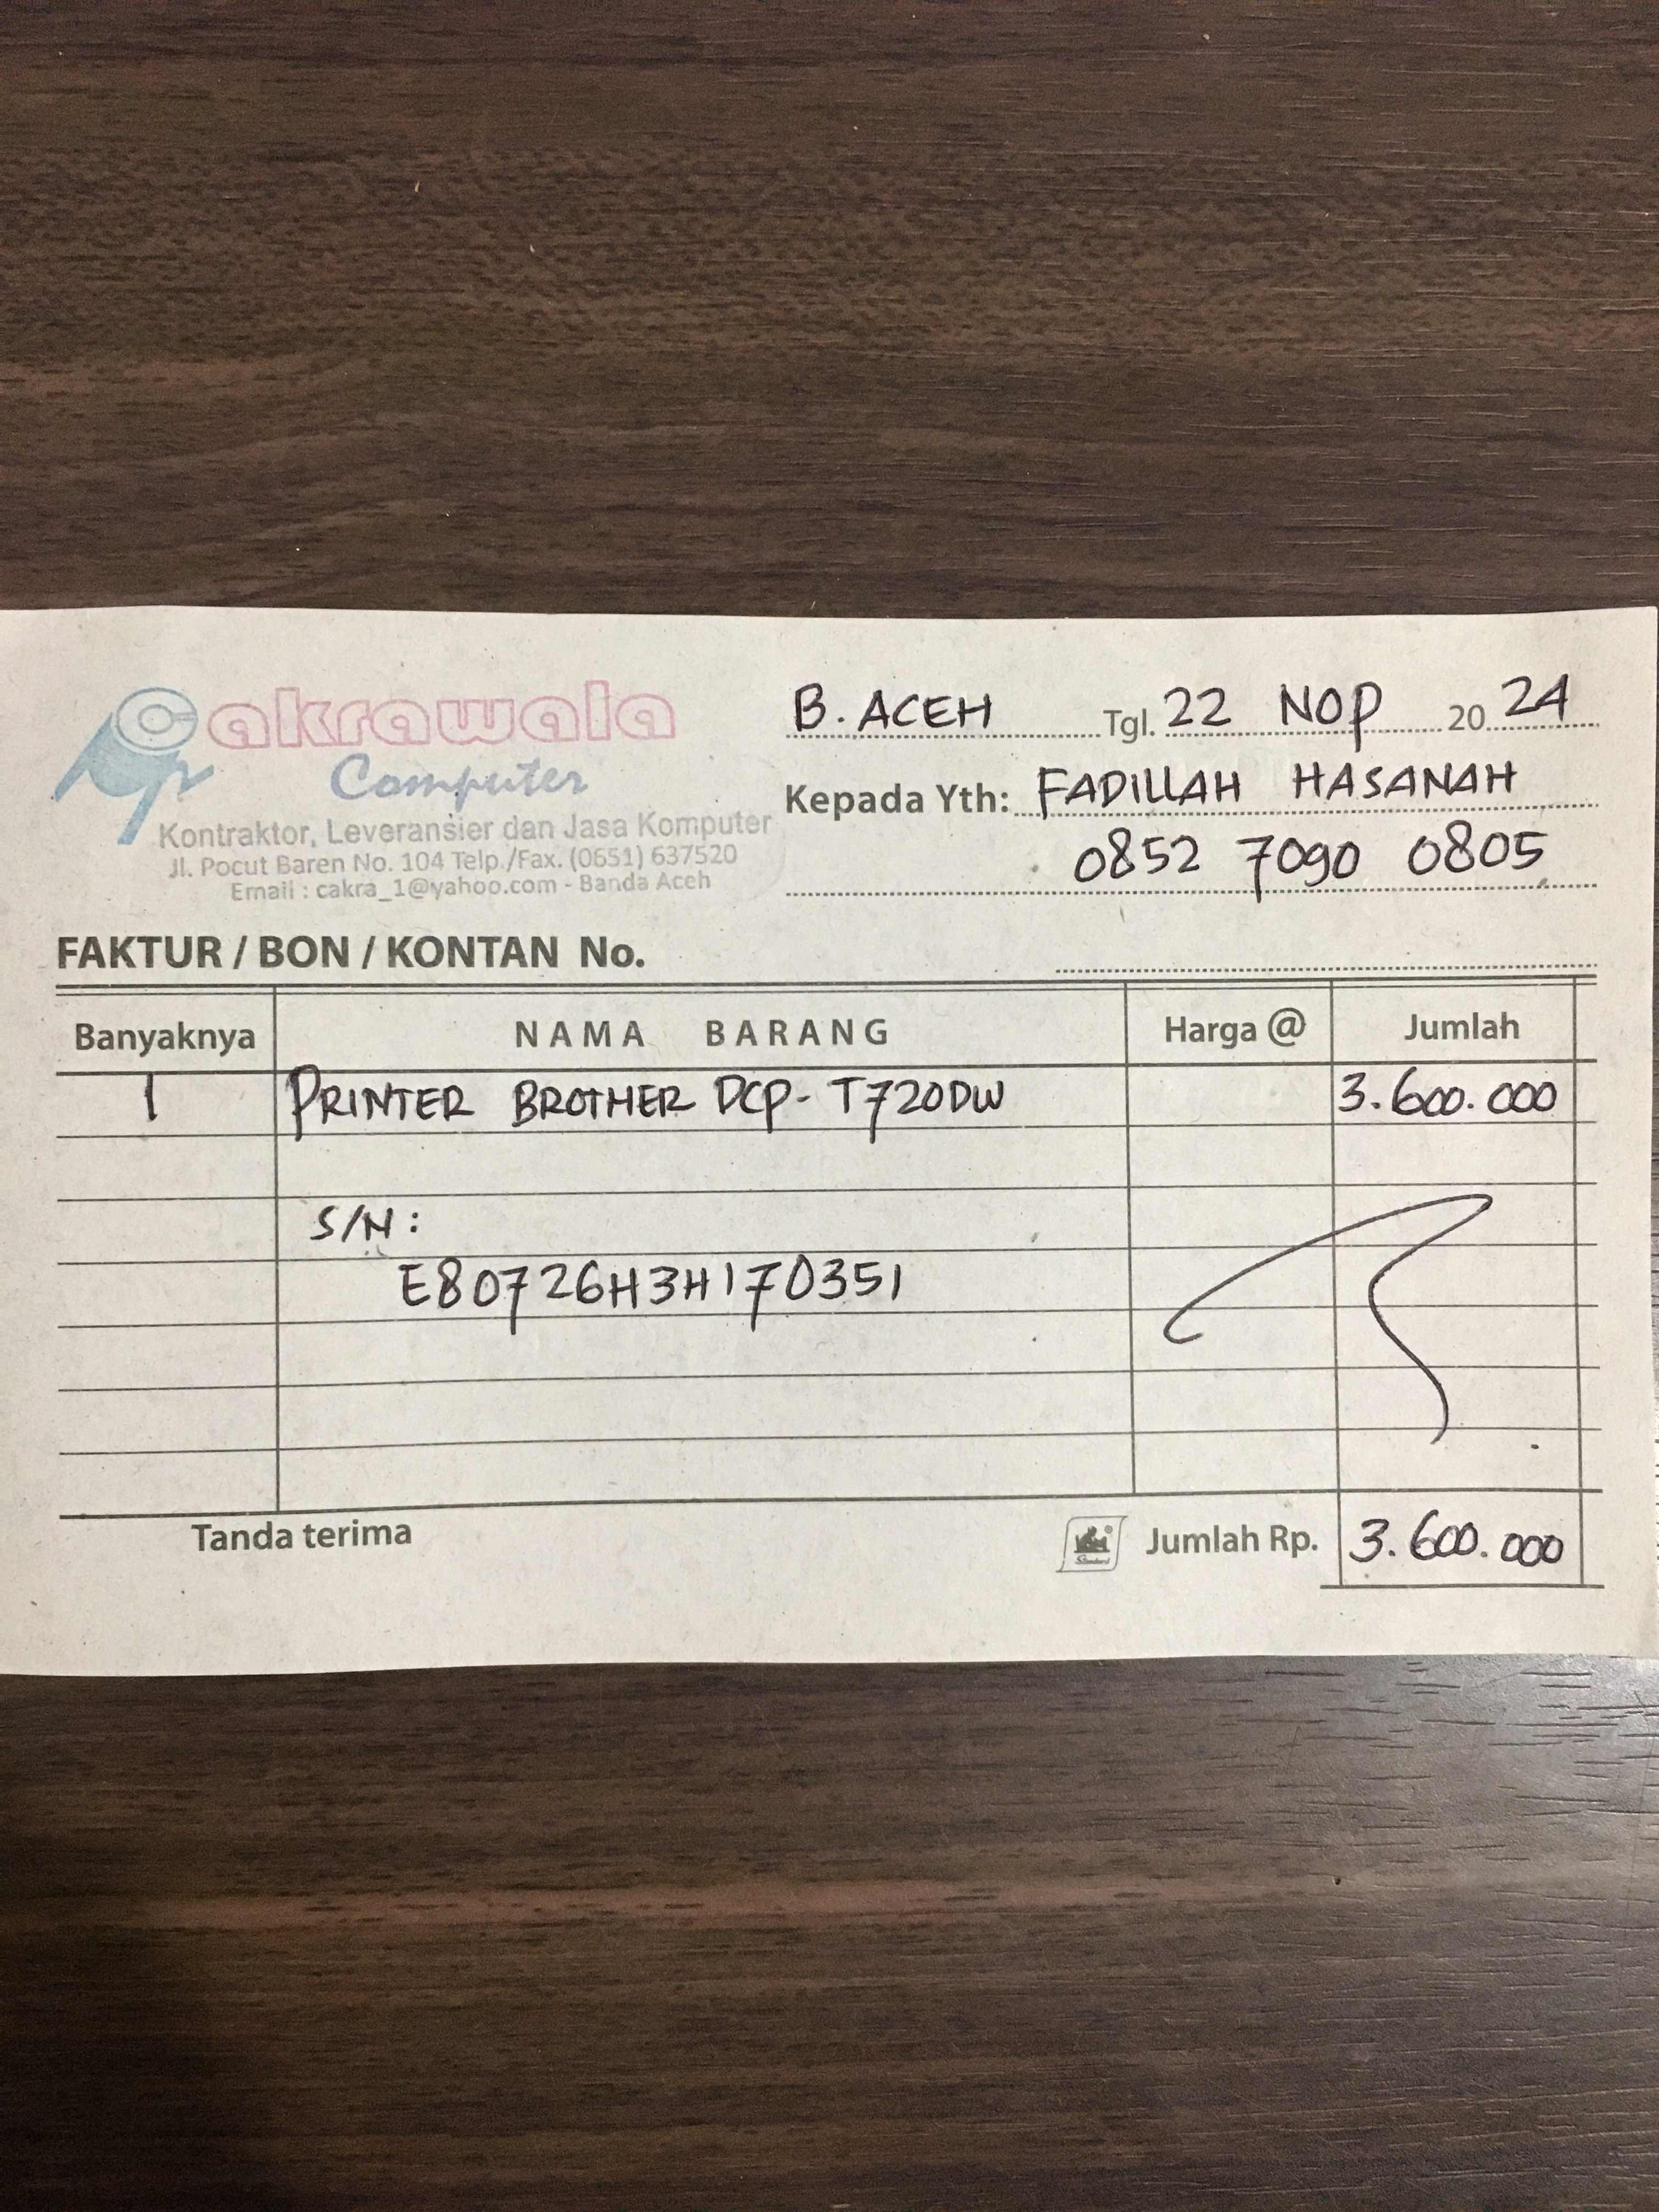 Cakrawala
Computer
Kontraktor, Leveransier dan Jasa Komputer
Jl. Pocut Baren No. 104 Telp./Fax. (0651) 637520
Email : cakra_1@yahoo.com - Banda Aceh
B. ACEH Tgl. 22 NOP 2024
Kepada Yth: FADILLAH HASANAH
0852 7090 0805
FAKTUR / BON / KONTAN No.
Banyaknya NAMA BARANG Harga @ Jumlah
1 PRINTER BROTHER DCP-T720DW 3.600.000
S/N:
E80726H3H170351
Tanda terima Jumlah Rp. 3.600.000